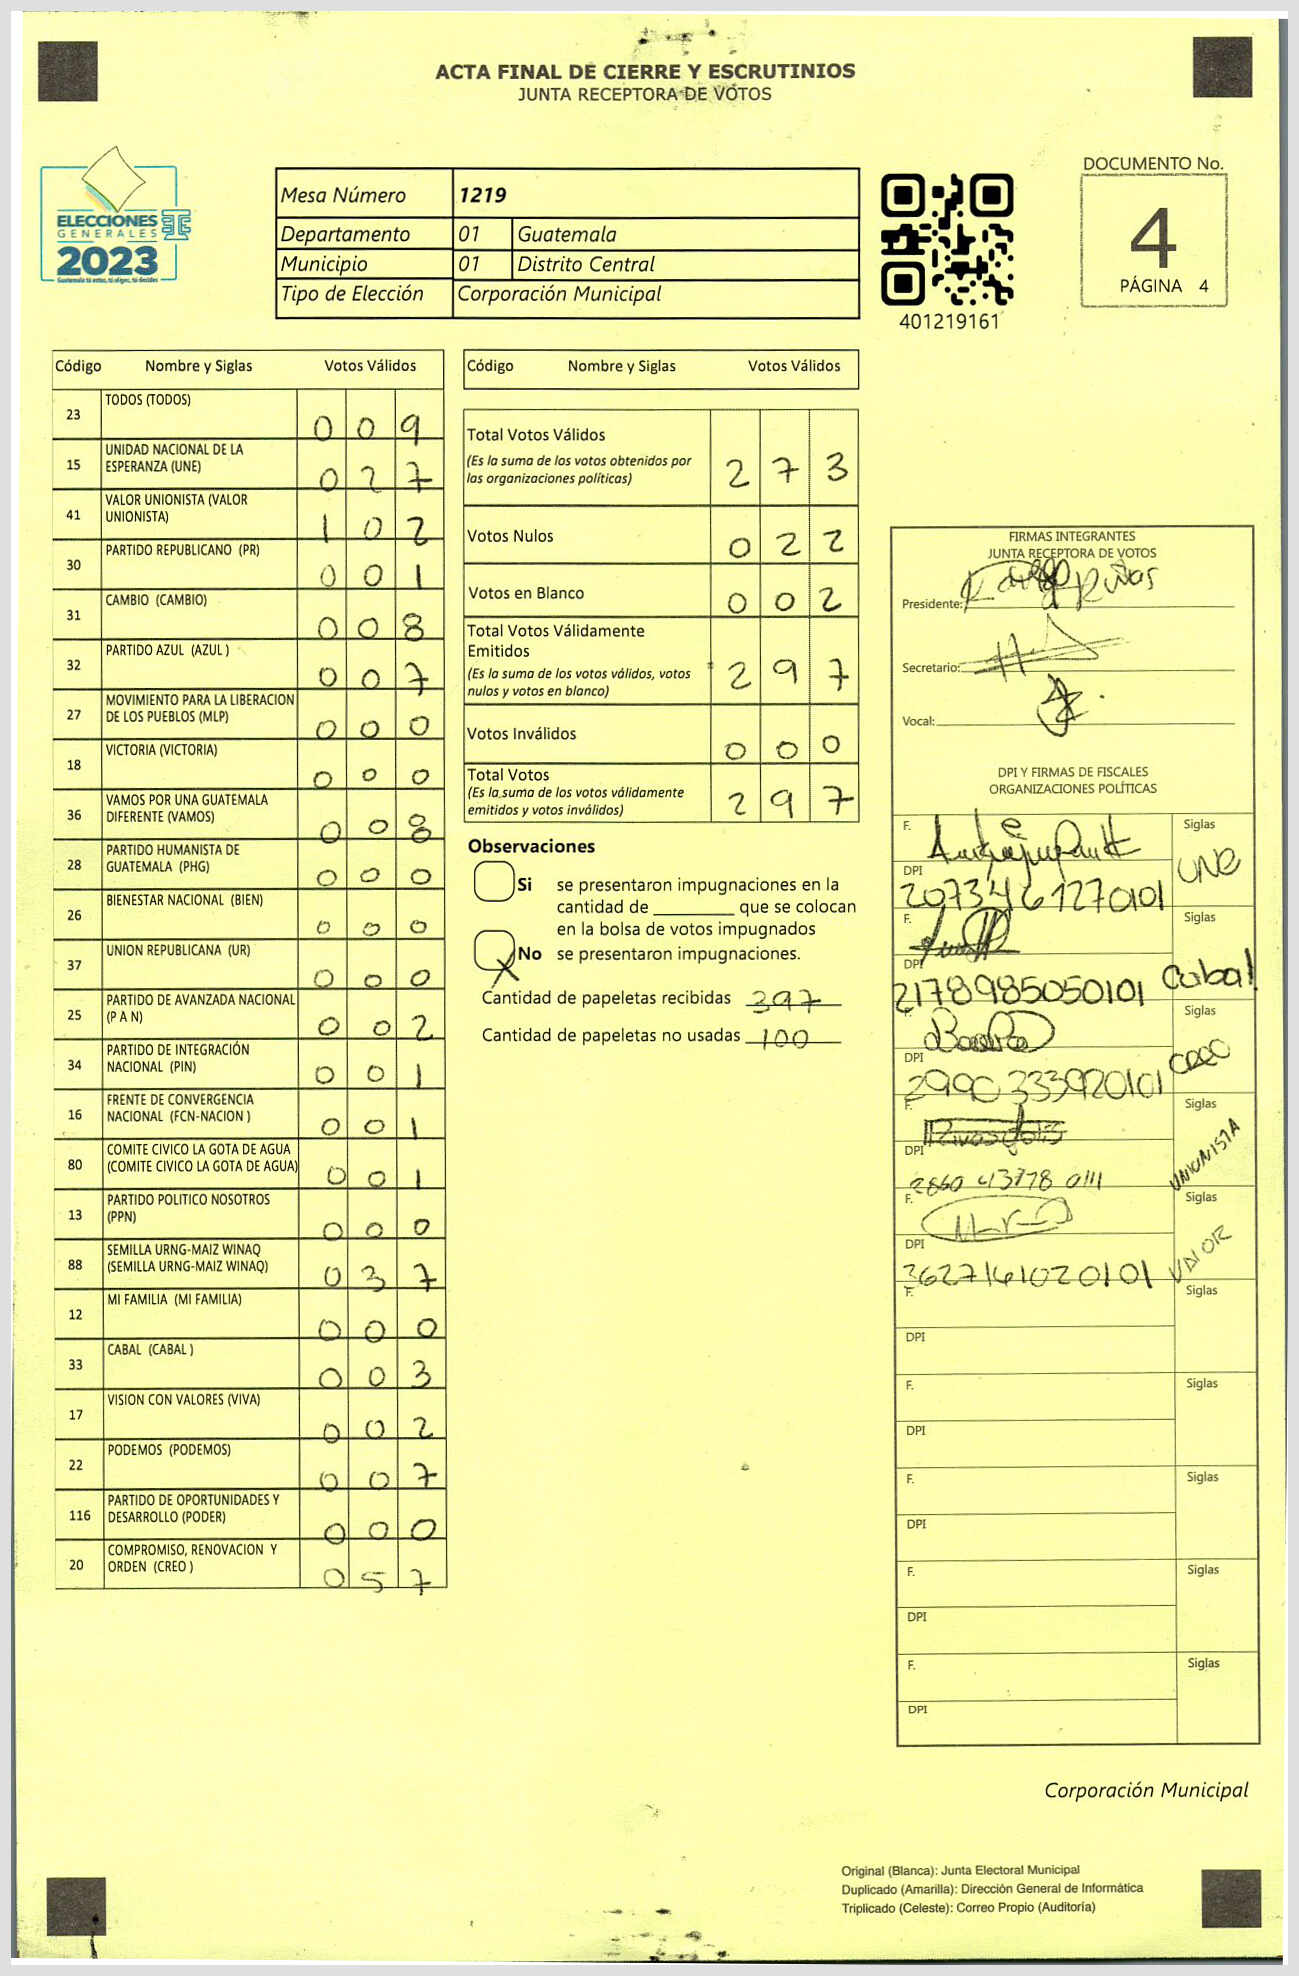 ACTA FINAL DE CIERRE Y ESCRUTINIOS
JUNTA RECEPTORA DE VOTOS
ELECCIONES
GENERALES
2023
Mesa Número 1219
Departamento 01 Guatemala
Municipio 01 Distrito Central
Tipo de Elección Corporación Municipal
401219161
DOCUMENTO No.
4
PÁGINA 4
Código Nombre y Siglas Votos Válidos
23 TODOS (TODOS) 0 0 9
15 UNIDAD NACIONAL DE LA
ESPERANZA (UNE) 0 2 7
41 VALOR UNIONISTA (VALOR
UNIONISTA) 1 0 2
30 PARTIDO REPUBLICANO (PR) 0 0 1
31 CAMBIO (CAMBIO) 0 0 8
32 PARTIDO AZUL (AZUL ) 0 0 7
27 MOVIMIENTO PARA LA LIBERACION
DE LOS PUEBLOS (MLP) 0 0 0
18 VICTORIA (VICTORIA) 0 0 0
36 VAMOS POR UNA GUATEMALA
DIFERENTE (VAMOS) 0 0 8
28 PARTIDO HUMANISTA DE
GUATEMALA (PHG) 0 0 0
26 BIENESTAR NACIONAL (BIEN) 0 0 0
37 UNION REPUBLICANA (UR) 0 0 0
25 PARTIDO DE AVANZADA NACIONAL
(P A N) 0 0 2
34 PARTIDO DE INTEGRACIÓN
NACIONAL (PIN) 0 0 1
16 FRENTE DE CONVERGENCIA
NACIONAL (FCN-NACION ) 0 0 1
80 COMITE CIVICO LA GOTA DE AGUA
(COMITE CIVICO LA GOTA DE AGUA) 0 0 1
13 PARTIDO POLITICO NOSOTROS
(PPN) 0 0 0
88 SEMILLA URNG-MAIZ WINAQ
(SEMILLA URNG-MAIZ WINAQ) 0 3 7
12 MI FAMILIA (MI FAMILIA) 0 0 0
33 CABAL (CABAL ) 0 0 3
17 VISION CON VALORES (VIVA) 0 0 2
22 PODEMOS (PODEMOS) 0 0 7
116 PARTIDO DE OPORTUNIDADES Y
DESARROLLO (PODER) 0 0 0
20 COMPROMISO, RENOVACION Y
ORDEN (CREO ) 0 5 7
Código Nombre y Siglas Votos Válidos
Total Votos Válidos
(Es la suma de los votos obtenidos por
las organizaciones políticas) 2 7 3
Votos Nulos 0 2 2
Votos en Blanco 0 0 2
Total Votos Válidamente
Emitidos
(Es la suma de los votos válidos, votos
nulos y votos en blanco) 2 9 7
Votos Inválidos 0 0 0
Total Votos
(Es la suma de los votos válidamente
emitidos y votos inválidos) 2 9 7
Observaciones
Si se presentaron impugnaciones en la
cantidad de ________ que se colocan
en la bolsa de votos impugnados
X No se presentaron impugnaciones.
Cantidad de papeletas recibidas 397
Cantidad de papeletas no usadas 100
FIRMAS INTEGRANTES
JUNTA RECEPTORA DE VOTOS
Presidente:
Secretario:
Vocal:
DPI Y FIRMAS DE FISCALES
ORGANIZACIONES POLÍTICAS
F. Siglas
DPI UNE
2073461270101
F. Siglas
DPI Cabal
2178985050101
F. Siglas
DPI CREO
2990333920101
F. Siglas
DPI UNIONISTA
2860 43778 0111
F. Siglas
DPI VALOR
3627161020101
F. Siglas
DPI
F. Siglas
DPI
F. Siglas
DPI
F. Siglas
DPI
F. Siglas
DPI
Corporación Municipal
Original (Blanca): Junta Electoral Municipal
Duplicado (Amarilla): Dirección General de Informática
Triplicado (Celeste): Correo Propio (Auditoría)